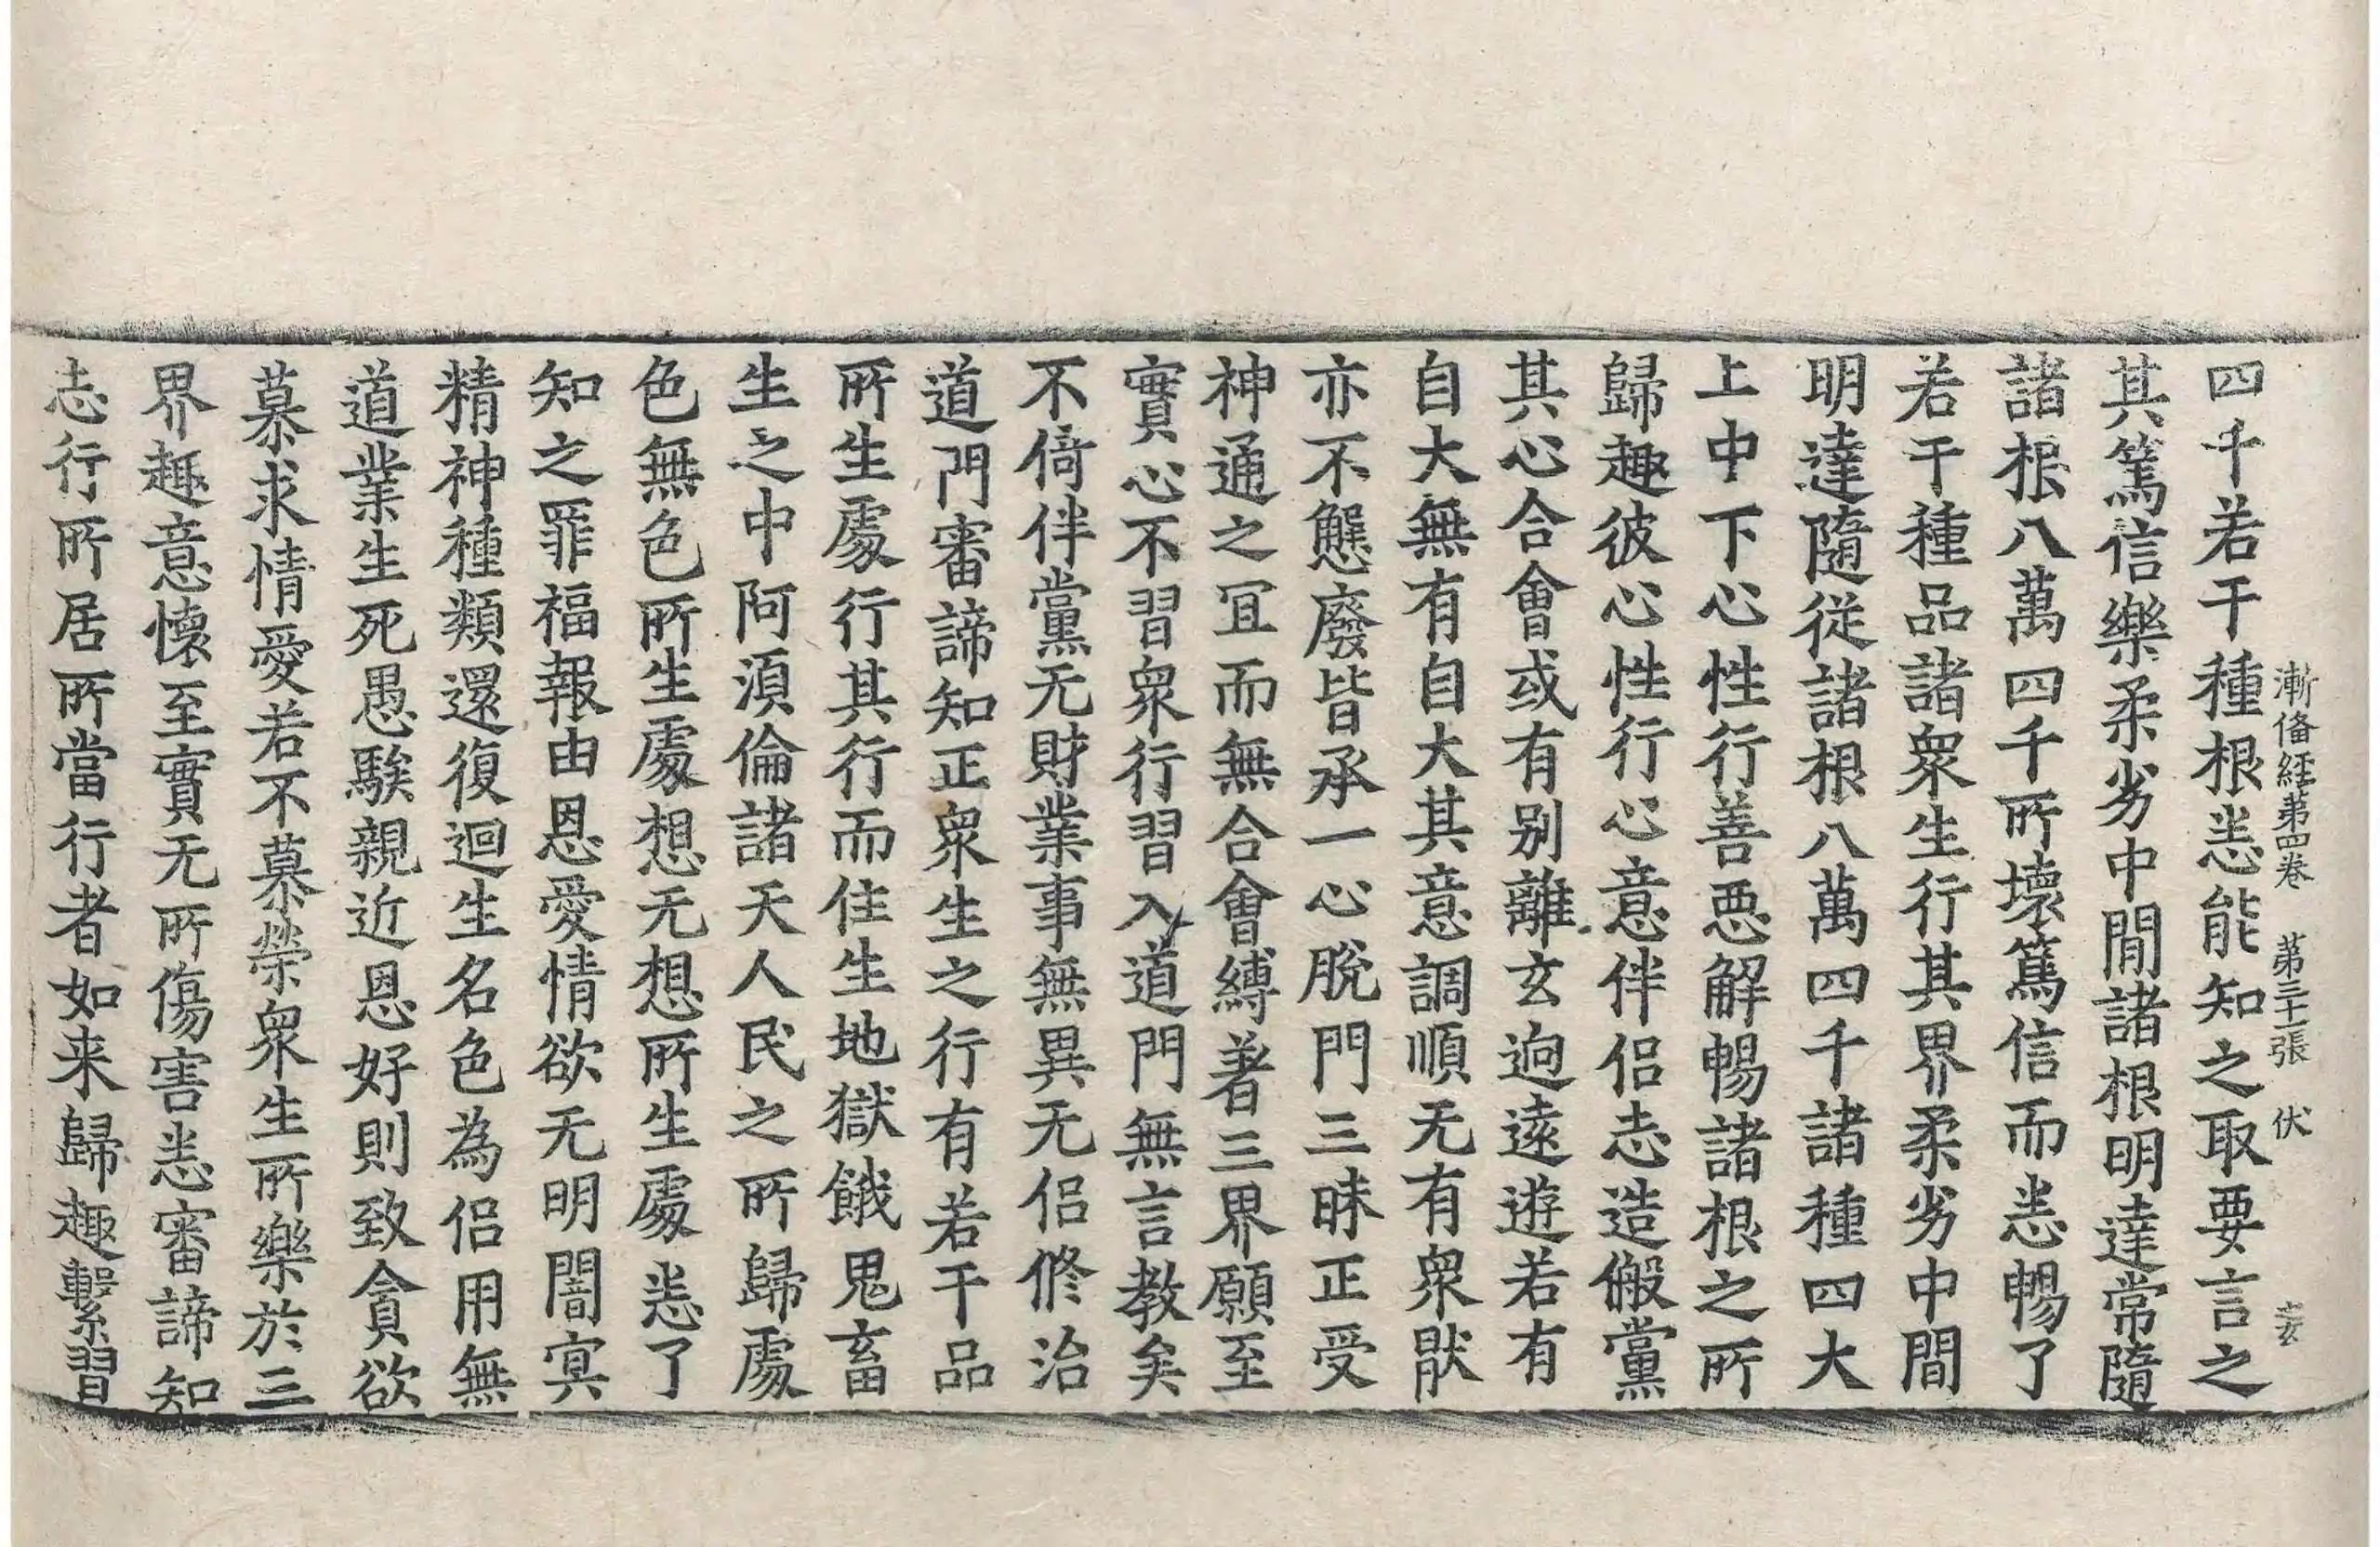 漸俻經第四卷　第三十一張　伏
四千若干種根恙能知之取要言之
其篤信樂柔劣中間諸根明達常隨
諸根八萬四千所壞篤信而恙暢了
若干種品諸衆生行其界柔劣中間
明達隨從諸根八萬四千諸種四大
上中下心性行善惡解暢諸根之所
歸趣彼心性行心意伴侶志造儌黨
其心合會或有别離玄逈遠遊若有
自大無有自大其意調順无有衆猒
亦不懸廢皆承一心脫門三昧正受
神通之冝而無合會縛著三界願至
實心不習衆行習入道門無言教矣
不倚伴黨无財業事無異无侶修治
道門審諦知正衆生之行有若干品
所生處行其行而住生地獄餓鬼畜
生之中阿須倫諸天人民之所歸處
色無色所生處想无想所生處恙了
知之罪福報由恩愛情欲无明闇冥
精神種類還復迴生名色為侶用無
道業生死愚騃親近恩好則致貪欲
慕求情愛若不慕榮衆生所樂於三
界趣意懷至實无所傷害恙審諦知
志行所居所當行者如来歸趣繫習